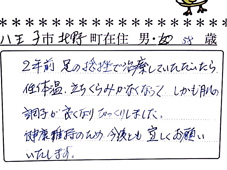 八王子市北野町在住 男・女 58 歳
2年前 足の捻挫で治療していただいたら
低体温、立ちくらみがなくなって、しかも肌の
調子が良くなりびっくりしました。
健康維持のため、今後とも宜しくお願い
いたします。